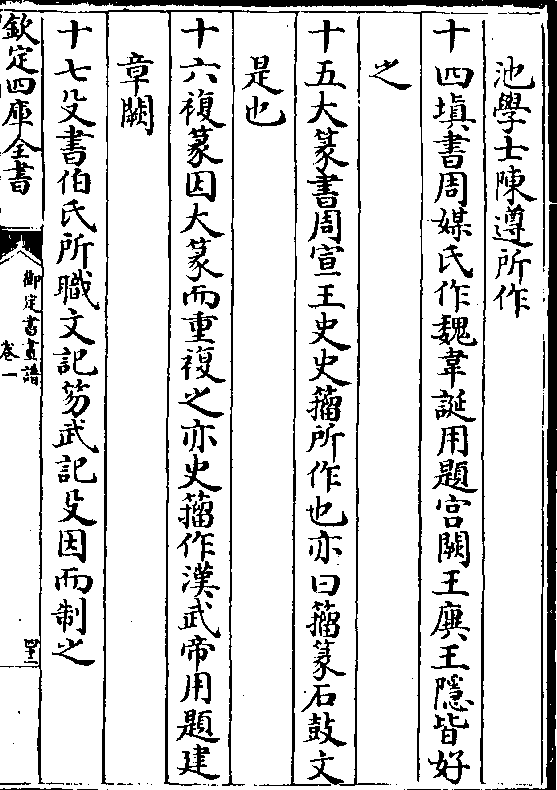 池學士陳遵所作
十四塡書周媒氏作魏韋誕用題宫闕王廙王隱皆好
之
十五大篆書周宣王史史籒所作也亦曰籒篆石鼓文
是也
十六複篆因大篆而重複之亦史籒作漢武帝用題建
章闕
十七殳書伯氏所職文記笏武記殳因而制之
欽定四庫全書
御定書畫譜
卷一